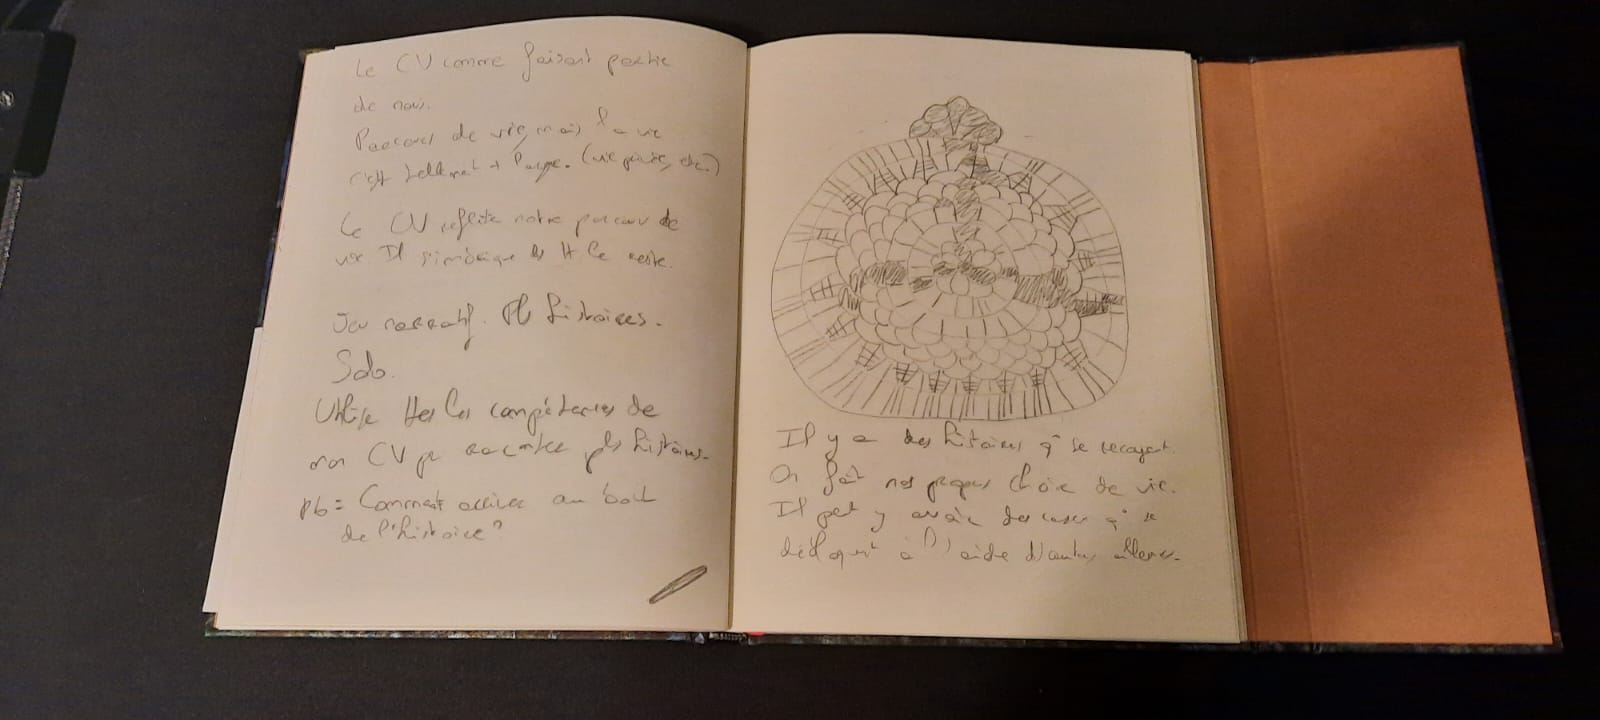 Le CV comme faisant partie
de nous.
Parcours de vie, mais la vie
c'est tellement + large. (vie privée, etc.)
Le CV reflète notre parcours de
vie. Il s'imbrique ds tt le reste.
Jeu narratif. Pl histoires.
Solo.
Utilise ttes les compétences de
mon CV pr raconter pls histoires.
Pb = Comment arriver au bout
de l'histoire?
Il y a des histoires q' se recoupent.
On fait nos propres choix de vie.
Il peut y avoir des cases q' se
à l'aide d'autres